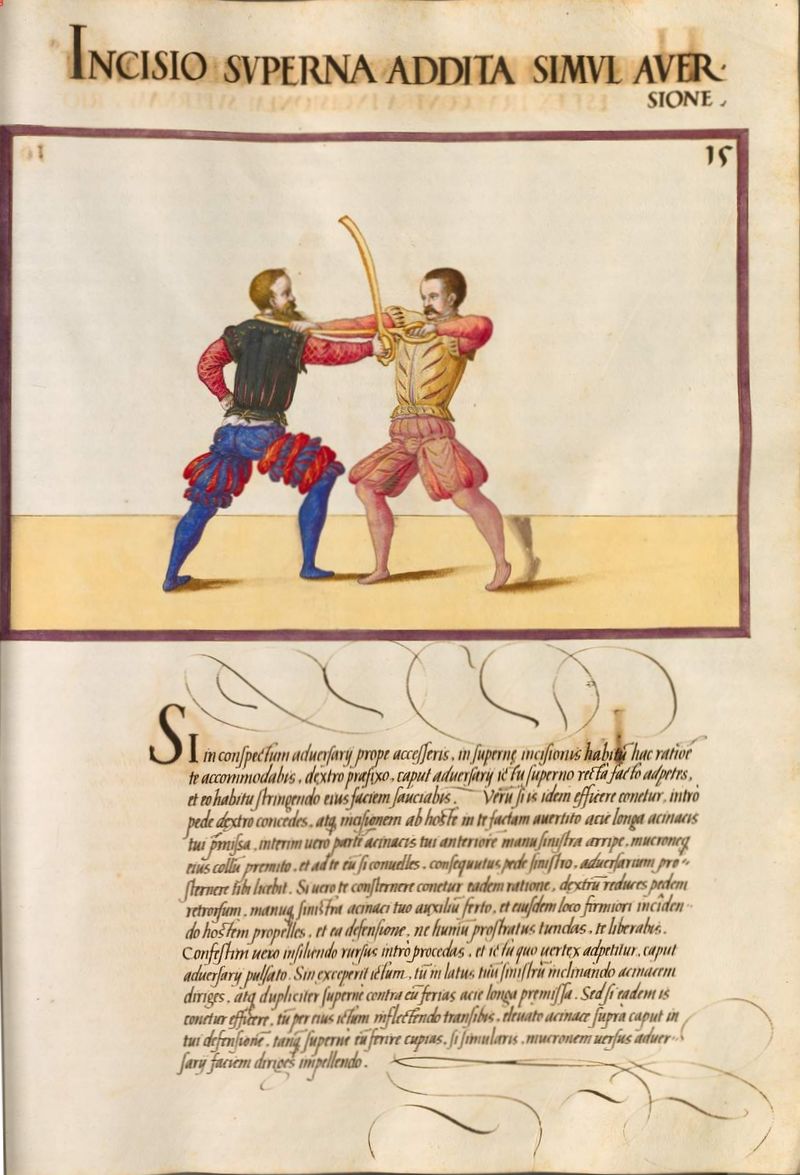 INCISIO SVPERNA ADDITA SIMVL AVER-
SIONE.
15
SI in conspectum aduersarij prope accesseris, in supernę incisionis habitū hac ratioē
te accommodabis, dextro præfixo, caput aduersarij ictu superno recta facto adpetes,
et eo habitu stringendo eius faciem sauciabis. Verū si is idem efficere conetur, intro
pede dextro concedes, atq incisionem ab hoste in te factam auertito acie longa acinacis
tui p̄missa, interim uero parte acinacis tui anteriorē manu sinistra arripe, mucroneq
eius collū premito, et ad te eū si conuelles, consequutus pede sinistro, aduersarium pro-
sternere tibi licebit. Si uero te consternere conetur eadem ratione, dextrū reduces pedem
retrorsum, manuq sinistra acinaci tuo auxiliū ferto, et eiusdem loco firmiori inciden-
do hostem propelles, et ea defensione, ne humū prostratus tundas, te liberabis.
Confestim uero insiliendo rursus intro procedas, et ictu quo uertex adpetitur, caput
aduersarij pulsato. Sin exceperit ictum, tū in latus tuū sinistrū inclinando acinacem
diriges, atq dupliciter superne contra eū ferias acie longa præmissa. Sed si eadem is
conetur efficere, tū per eius ictum inflectendo transibis, eleuato acinace supra caput in
tui defensionē, tanq superne eū ferire cupias, si simularis, mucronem uersus aduer-
sarij faciem diriges impellendo.